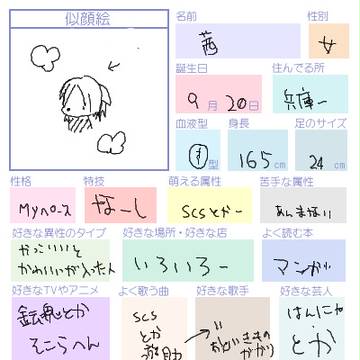 似顔絵
名前
性別
茜
女
誕生日
住んでる所
9月20日
兵庫ー
血液型
身長
足のサイズ
型
165cm
24cm
性格
特技
萌える属性
苦手な属性
Myペース
なーし
scsとかー
あんまない
好きな異性のタイプ
好きな場所・好きな店
よく読む本
かっこいいと
かわいいが入った人
いろいろー
マンガ
好きなTVやアニメ
よく歌う曲
好きな歌手
好きな芸人
とか
そこらへん
scs
とか
はんにゃ
とか